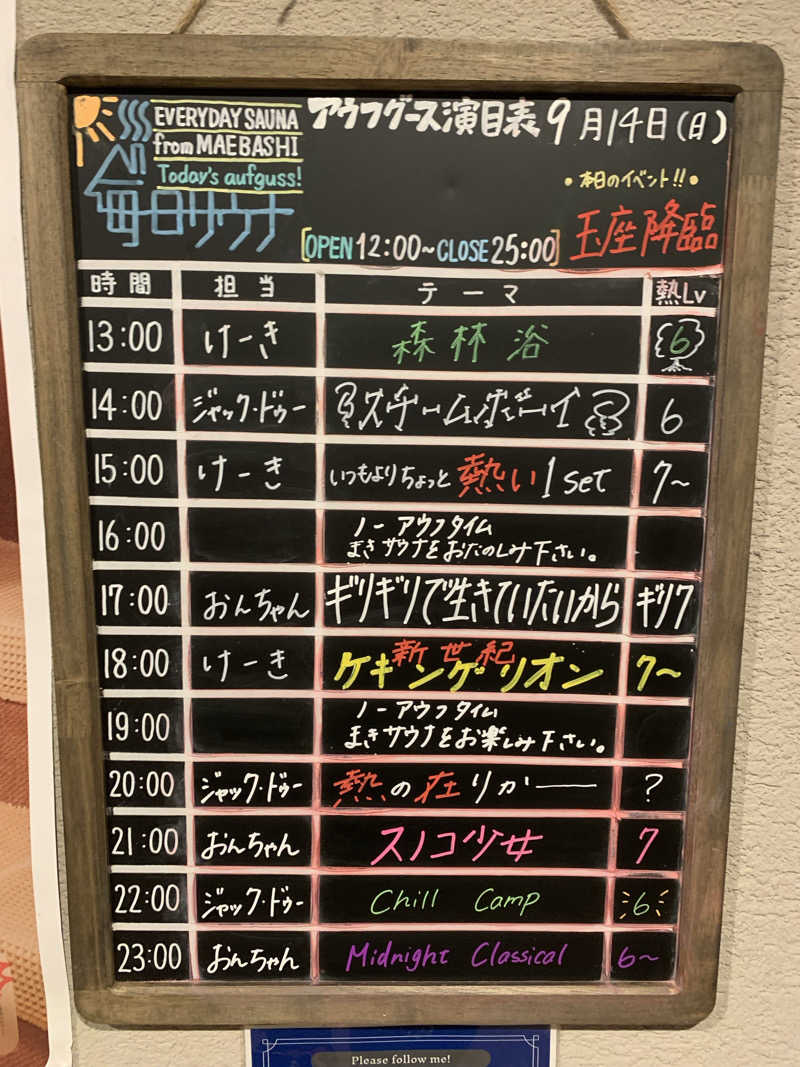 EVERYDAY SAUNA
from MAEBASHI
Today's aufguss!
毎日サウナ
アウフグース演目表 9月14日(日)
• 本日のイベント!! •
玉座降臨
[OPEN 12:00~CLOSE 25:00]
時間 担当 テーマ 熱Lv
13:00 けーき 森林浴 6
14:00 ジャック・ドゥー スチームボーイ 6
15:00 けーき いつもよりちょっと熱い1set 7~
16:00 ノーアウフタイム
まきサウナをおたのしみ下さい。
17:00 おんちゃん ギリギリで生きていたいから ギリ7
18:00 けーき 新世紀
ケキンゲリオン 7~
19:00 ノーアウフタイム
まきサウナをお楽しみ下さい。
20:00 ジャック・ドゥー 熱の在りか―― ?
21:00 おんちゃん スノコ少女 7
22:00 ジャック・ドゥー Chill Camp 6
23:00 おんちゃん Midnight Classical 6~
Please follow me!